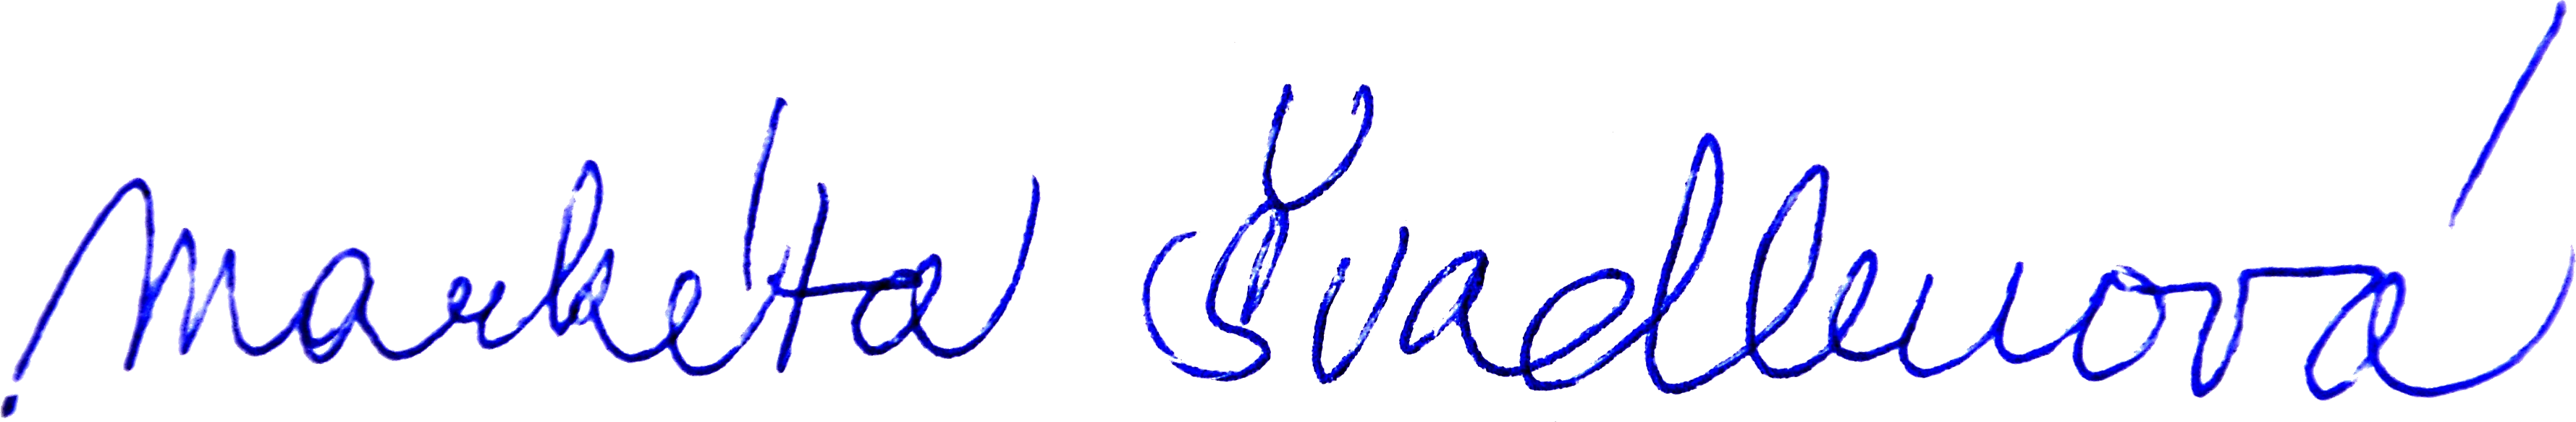 Markéta Švadlenová